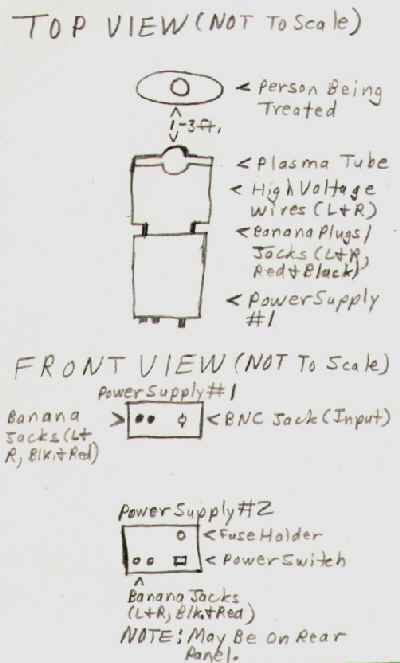 TOP VIEW (NOT To Scale)
< Person Being
Treated
1-3 ft.
< Plasma Tube
< High Voltage
Wires (L+R)
< Banana Plugs/
Jacks (L+R,
Red+Black)
< Power Supply
#1
FRONT VIEW (NOT To Scale)
Power Supply #1
Banana
Jacks (L+
R, Blk.+Red)
>
< BNC Jack (Input)
Power Supply #2
< Fuse Holder
< Power Switch
Banana Jacks
(L+R, Blk.+Red)
NOTE: May Be On Rear
Panel.